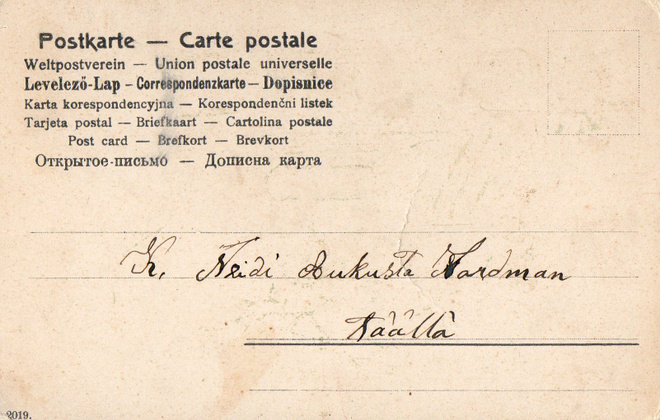 Postkarte — Carte postale
Weltpostverein — Union postale universelle
Levelező-Lap – Correspondenzkarte – Dopisnice
Karta korespondencyjna — Korespondenčni listek
Tarjeta postal — Briefkaart — Cartolina postale
Post card — Brefkort — Brevkort
Открытое-письмо — Дописна карта
K, Neidi Aukusta Nordman
täällä
2019.